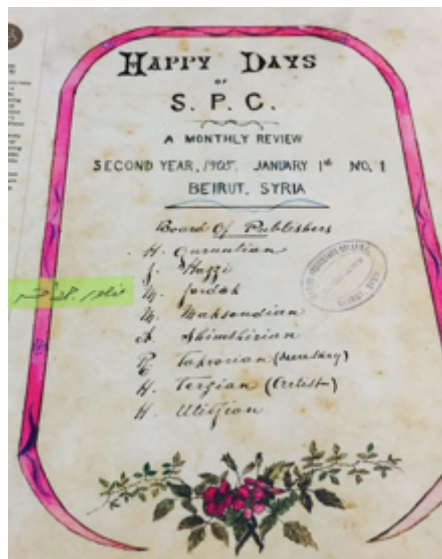 HAPPY DAYS
OF
S. P. C.
A MONTHLY REVIEW
SECOND YEAR, 1905. JANUARY 1st NO. 1
BEIRUT, SYRIA
Board Of Publishers
H.
J. Hazzi
M. Jordak
M. Maksoudian
A. Shimshirian
(Secretary)
H. Terzian (Artist)
H. Utidjian